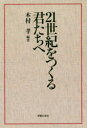 21世紀をつくる
君たちへ
木村 孝 編著